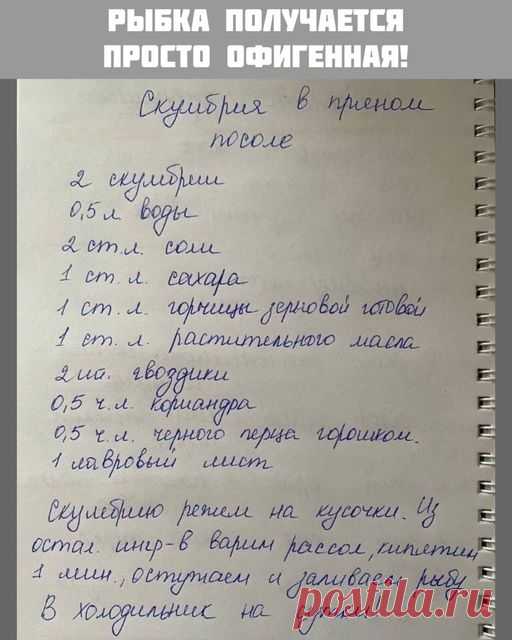 РЫБКА ПОЛУЧАЕТСЯ
ПРОСТО ОФИГЕННАЯ!
Скумбрия в пряном
посоле
2 скумбрии
0,5 л воды
2 ст. л. соли
1 ст. л. сахара
1 ст. л. горчицы зерновой готовой
1 ст. л. растительного масла
2 шт. гвоздики
0,5 ч. л. кориандра
0,5 ч. л. черного перца горошком.
1 лавровый лист
Скумбрию режем на кусочки. Из
остал. ингр-в варим рассол, кипятим
1 мин., остужаем и заливаем рыбу
В холодильник на сутки
postila.ru